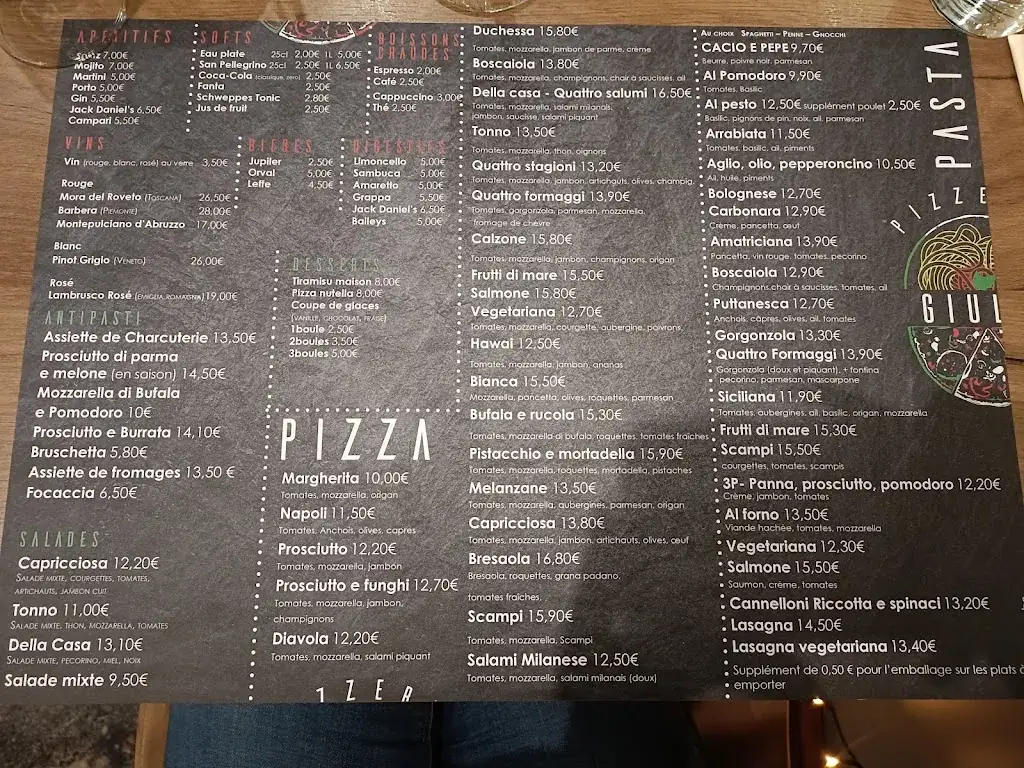 APERITIFS
Spritz 7,00€
Mojito 7,00€
Martini 5,00€
Porto 5,00€
Gin 5,50€
Jack Daniel's 6,50€
Campari 5,50€
SOFTS
Eau plate 25cl 2,00€ 1L 5,00€
San Pellegrino 25cl 2,50€ 1L 6,50€
Coca-Cola (classique, zero) 2,50€
Fanta 2,50€
Schweppes Tonic 2,80€
Jus de fruit 2,50€
BOISSONS
CHAUDES
Espresso 2,00€
Café 2,50€
Cappuccino 3,00€
Thé 2,50€
VINS
Vin (rouge, blanc, rosé) au verre 3,50€
Rouge
Mora del Roveto (Toscana) 26,50€
Barbera (Piemonte) 28,00€
Montepulciano d'Abruzzo 17,00€
Blanc
Pinot Grigio (Veneto) 26,00€
Rosé
Lambrusco Rosé (Emiglia,Romaigna) 19,00€
BIERES
Jupiler 2,50€
Orval 5,00€
Leffe 4,50€
DIGESTIFS
Limoncello 5,00€
Sambuca 5,00€
Amaretto 5,00€
Grappa 5,50€
Jack Daniel's 6,50€
Baileys 5,00€
ANTIPASTI
Assiette de Charcuterie 13,50€
Prosciutto di parma
e melone (en saison) 14,50€
Mozzarella di Bufala
e Pomodoro 10€
Prosciutto e Burrata 14,10€
Bruschetta 5,80€
Assiette de fromages 13,50 €
Focaccia 6,50€
SALADES
Capricciosa 12,20€
Salade mixte, courgettes, tomates,
artichauts, jambon cuit
Tonno 11,00€
Salade mixte, thon, mozzarella, tomates
Della Casa 13,10€
Salade mixte, pecorino, miel, noix
Salade mixte 9,50€
DESSERTS
Tiramisu maison 8,00€
Pizza nutella 8,00€
Coupe de glaces
(vanille, chocolat, fraise)
1boule 2,50€
2boules 3,50€
3boules 5,00€
PIZZA
Margherita 10,00€
Tomates, mozzarella, origan
Napoli 11,50€
Tomates, Anchois, olives, capres
Prosciutto 12,20€
Tomates, mozzarella, jambon
Prosciutto e funghi 12,70€
Tomates, mozzarella, jambon,
champignons
Diavola 12,20€
Tomates, mozzarella, salami piquant
Duchessa 15,80€
Tomates, mozzarella, jambon de parme, crème
Boscaiola 13,80€
Tomates, mozzarella, champignons, chair à saucisses, ail
Della casa - Quattro salumi 16,50€
Tomates, mozzarella, salami milanais,
jambon, saucisse, salami piquant
Tonno 13,50€
Tomates, mozzarella, thon, oignons
Quattro stagioni 13,20€
Tomates, mozzarella, jambon, artichauts, olives, champig.
Quattro formaggi 13,90€
Tomates, gorgonzola, parmesan, mozzarella,
fromage de chèvre
Calzone 15,80€
Tomates, mozzarella, jambon, champignons, origan
Frutti di mare 15,50€
Salmone 15,80€
Vegetariana 12,70€
Tomates, mozzarella, courgette, aubergine, poivrons,
Hawai 12,50€
Tomates, mozzarella, jambon, ananas
Bianca 15,50€
Mozzarella, pancetta, olives, roquettes, parmesan
Bufala e rucola 15,30€
Tomates, mozzarella di bufala, roquettes, tomates fraiches
Pistacchio e mortadella 15,90€
Tomates, mozzarella, roquettes, mortadella, pistaches
Melanzane 13,50€
Tomates, mozzarella, aubergines, parmesan, origan
Capricciosa 13,80€
Tomates, mozzarella, jambon, artichauts, olives, œuf
Bresaola 16,80€
Bresaola, roquettes, grana padano,
tomates fraiches,
Scampi 15,90€
Tomates, mozzarella, Scampi
Salami Milanese 12,50€
Tomates, mozzarella, salami milanais (doux)
PASTA
Au choix Spaghetti – Penne – Gnocchi
CACIO E PEPE 9,70€
Beurre, poivre noir, parmesan
Al Pomodoro 9,90€
Tomates, Basilic
Al pesto 12,50€ supplément poulet 2,50€
Basilic, pignons de pin, noix, ail, parmesan
Arrabiata 11,50€
Tomates, basilic, ail, piments
Aglio, olio, pepperoncino 10,50€
Ail, huile, piments
Bolognese 12,70€
Carbonara 12,90€
Crème, pancetta, œuf
Amatriciana 13,90€
Pancetta, vin rouge, tomates, pecorino
Boscaiola 12,90€
Champignons, chair à saucisses, tomates, ail
Puttanesca 12,70€
Anchois, câpres, olives, ail, tomates
Gorgonzola 13,30€
Quattro Formaggi 13,90€
Gorgonzola (doux et piquant), + fontina
pecorino, parmesan, mascarpone
Siciliana 11,90€
Tomates, aubergines, ail, basilic, origan, mozzarella
Frutti di mare 15,30€
Scampi 15,50€
courgettes, tomates, scampis
3P- Panna, prosciutto, pomodoro 12,20€
Crème, jambon, tomates
Al forno 13,50€
Viande hachée, tomates, mozzarella
Vegetariana 12,30€
Salmone 15,50€
Saumon, crème, tomates
Cannelloni Riccotta e spinaci 13,20€
Lasagna 14,50€
Lasagna vegetariana 13,40€
Supplément de 0,50 € pour l'emballage sur les plats à
emporter
PIZZE
GIUL
IZZER